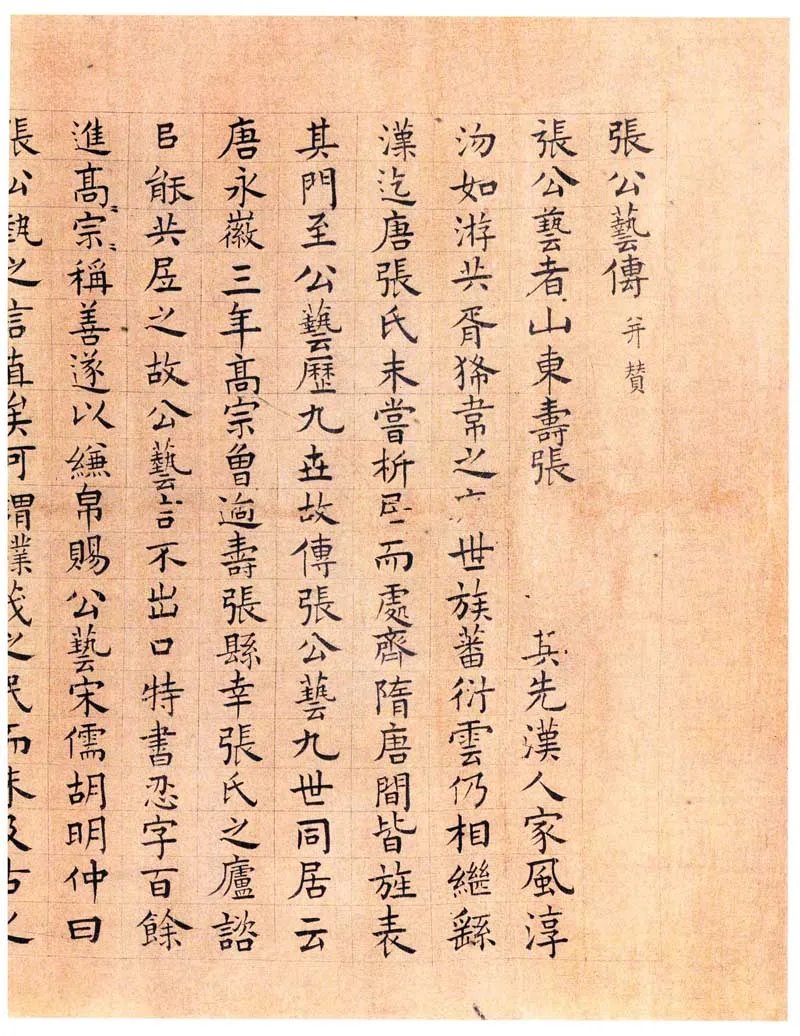 張公藝傳 并贊
張公藝者山東壽張 其先漢人家風淳
沕如游共胥狶韋之 世族蕃衍雲仍相繼繇
漢迄唐張氏未嘗析居而處齊隋唐間皆旌表
其門至公藝歷九世故傳張公藝九世同居云
唐永徽三年高宗魯適壽張縣幸張氏之廬諮
㠯能共居之故公藝言不出口特書忍字百餘
進高〻宗〻稱善遂以縑帛賜公藝宋儒胡明仲曰
張公 之言直矣可謂業 之民而未及古之